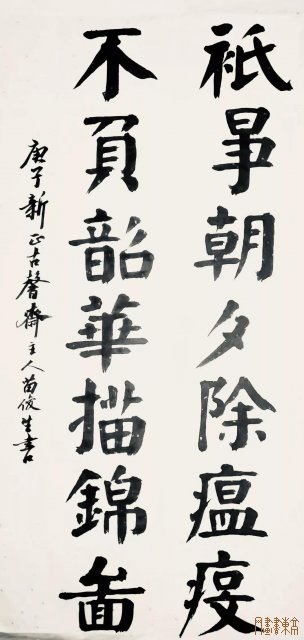 祗爭朝夕除瘟疫
不負韶華描錦啚
庚子新正古馨齋主人苗俊生書